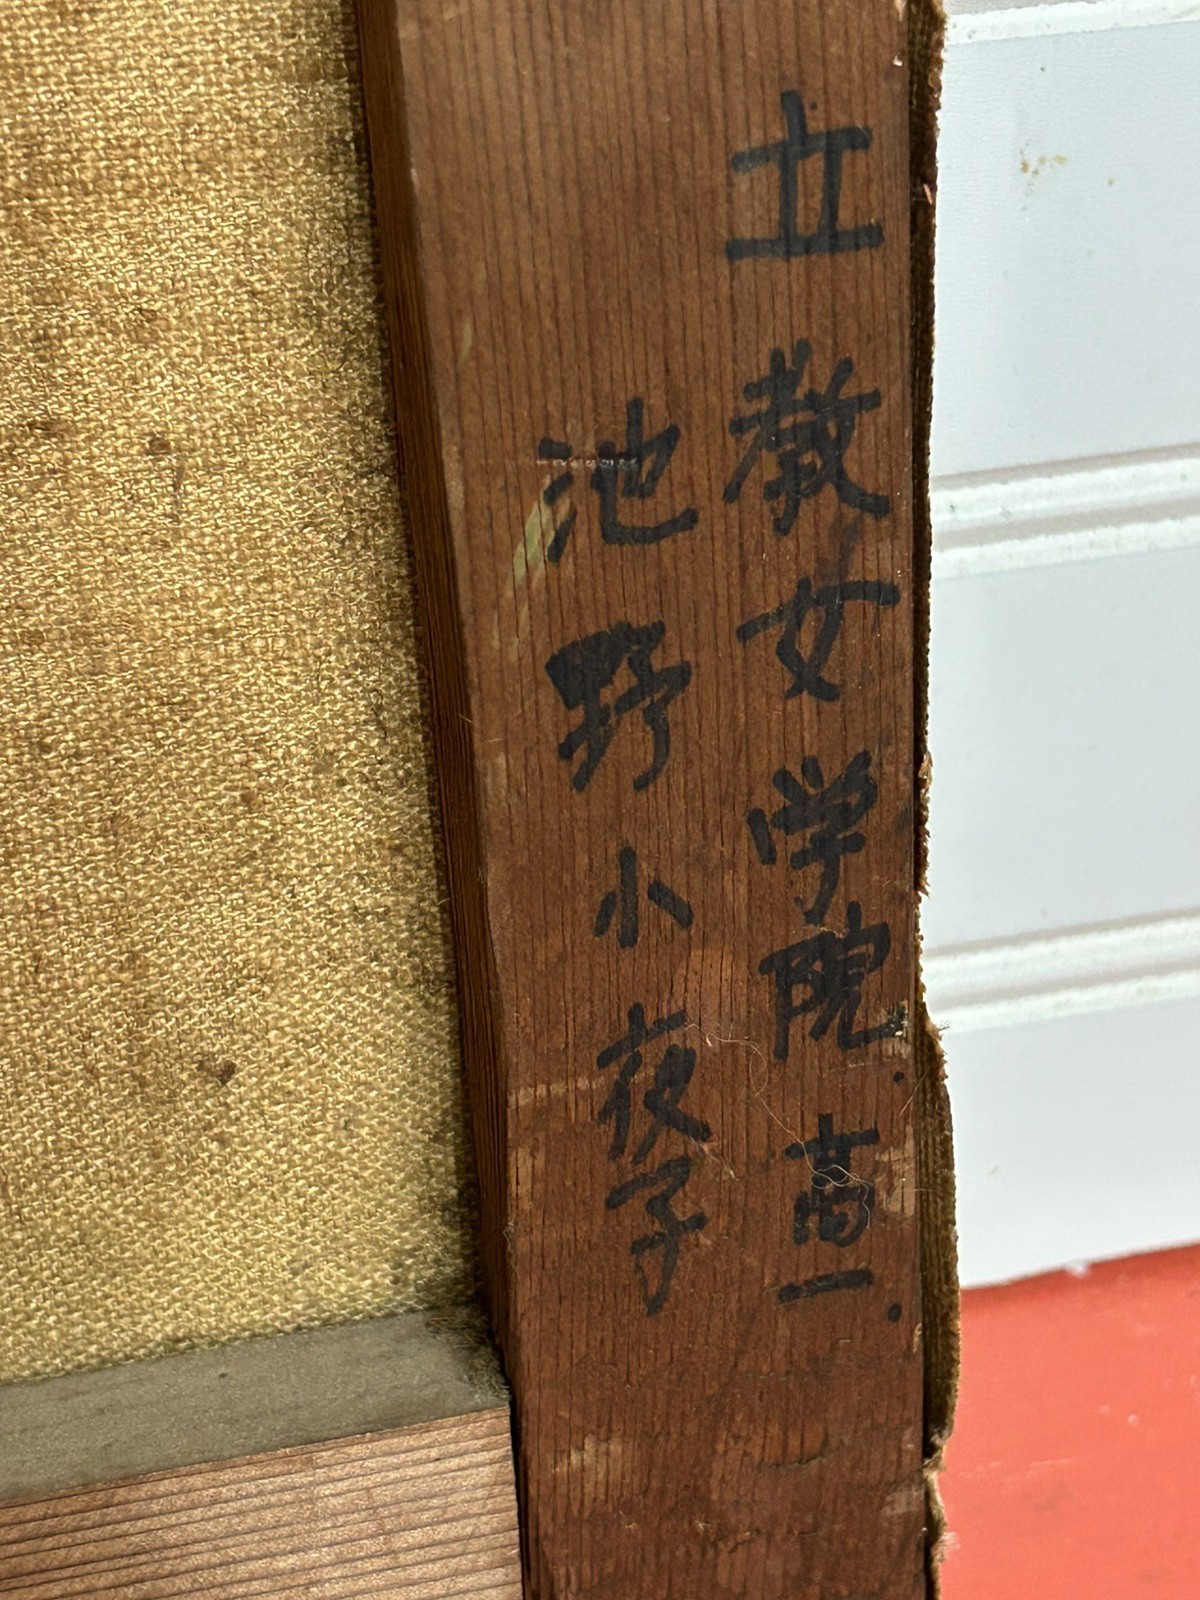 立教女学院.高一.
池野小夜子